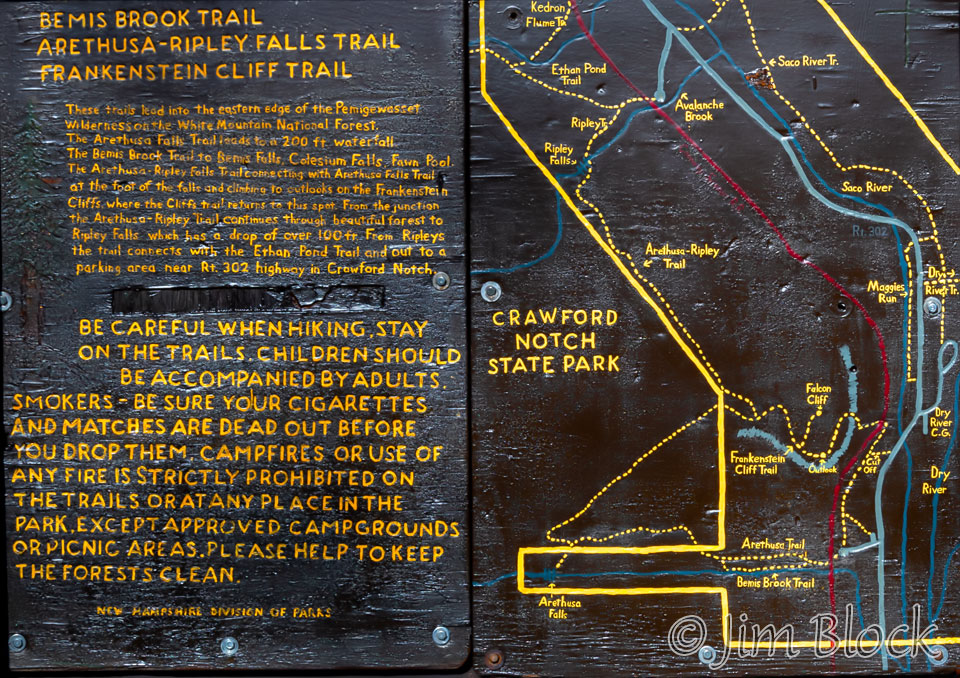 BEMIS BROOK TRAIL
ARETHUSA-RIPLEY FALLS TRAIL
FRANKENSTEIN CLIFF TRAIL
These trails lead into the eastern edge of the Pemigewasset
Wilderness on the White Mountain National Forest.
The Arethusa Falls Trail leads to a 200 ft. waterfall
The Bemis Brook Trail to Bemis Falls, Colesium Falls, Fawn Pool.
The Arethusa-Ripley Falls Trail connecting with Arethusa Falls Trail
at the foot of the falls and climbing to outlooks on the Frankenstein
Cliffs, where the Cliffs trail returns to this spot. From the junction
the Arethusa-Ripley Trail continues through beautiful forest to
Ripley Falls which has a drop of over 100 ft. From Ripleys
the trail connects with the Ethan Pond Trail and out to a
parking area near Rt. 302 highway in Crawford Notch.
BE CAREFUL WHEN HIKING. STAY
ON THE TRAILS. CHILDREN SHOULD
BE ACCOMPANIED BY ADULTS.
SMOKERS - BE SURE YOUR CIGARETTES
AND MATCHES ARE DEAD OUT BEFORE
YOU DROP THEM. CAMPFIRES OR USE OF
ANY FIRE IS STRICTLY PROHIBITED ON
THE TRAILS OR AT ANY PLACE IN THE
PARK, EXCEPT APPROVED CAMPGROUNDS
OR PICNIC AREAS. PLEASE HELP TO KEEP
THE FORESTS CLEAN.
NEW HAMPSHIRE DIVISION OF PARKS
Kedron
Flume Tr.
Ethan Pond
Trail
Saco River Tr.
Avalanche
Brook
Ripley Tr.
Ripley
Falls
Saco River
Rt. 302
Arethusa-Ripley
Trail
Maggies
Run
Dry
River Tr.
CRAWFORD
NOTCH
STATE PARK
Falcon
Cliff
Frankenstein
Cliff Trail
Outlook
Cut
Off
Dry
River
C.G.
Dry
River
Arethusa Trail
Bemis Brook Trail
Arethusa
Falls
© Jim Block